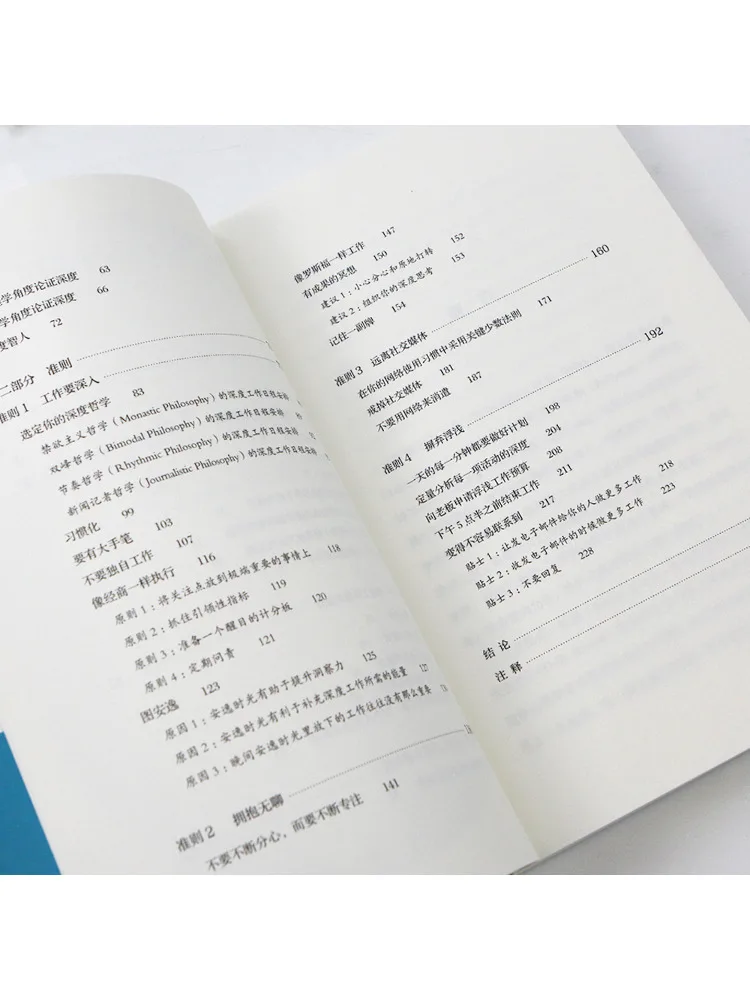 学角度论证深度 63
学角度论证深度 66
度智人 72
二部分 准则
准则 1 工作要深入
选定你的深度哲学 83
禁欲主义哲学（Monastic Philosophy）的深度工作日程安排
双峰哲学（Bimodal Philosophy）的深度工作日程安排
节奏哲学（Rhythmic Philosophy）的深度工作日程安排
新闻记者哲学（Journalistic Philosophy）的深度工作日程安排
习惯化 99
要有大手笔 103
不要独自工作 107
像经商一样执行 116
原则 1：将关注点放到极端重要的事情上 118
原则 2：抓住引领性指标 119
原则 3：准备一个醒目的计分板 120
原则 4：定期问责 121
图安逸 123
原因 1：安逸时光有助于提升洞察力 125
原因 2：安逸时光有利于补充深度工作所需的能量 127
原因 3：晚间安逸时光里放下的工作往往没有那么重要
准则 2 拥抱无聊
不要不断分心，而要不断专注 141
像罗斯福一样工作 147
有成果的冥想 150
建议 1：小心分心和原地打转 152
建议 2：组织你的深度思考 153
记住一副牌 154
准则 3 远离社交媒体 160
在你的网络使用习惯中采用关键少数法则 171
戒掉社交媒体 181
不要用网络来消遣 187
准则 4 摒弃浮浅 192
一天的每一分钟都要做好计划 198
定量分析每一项活动的深度 204
向老板申请浮浅工作预算 208
下午 5 点半之前结束工作 211
变得不容易联系到 217
贴士 1：让发电子邮件给你的人做更多工作 218
贴士 2：收发电子邮件的时候做更多工作 223
贴士 3：不要回复 228
结 论
注 释